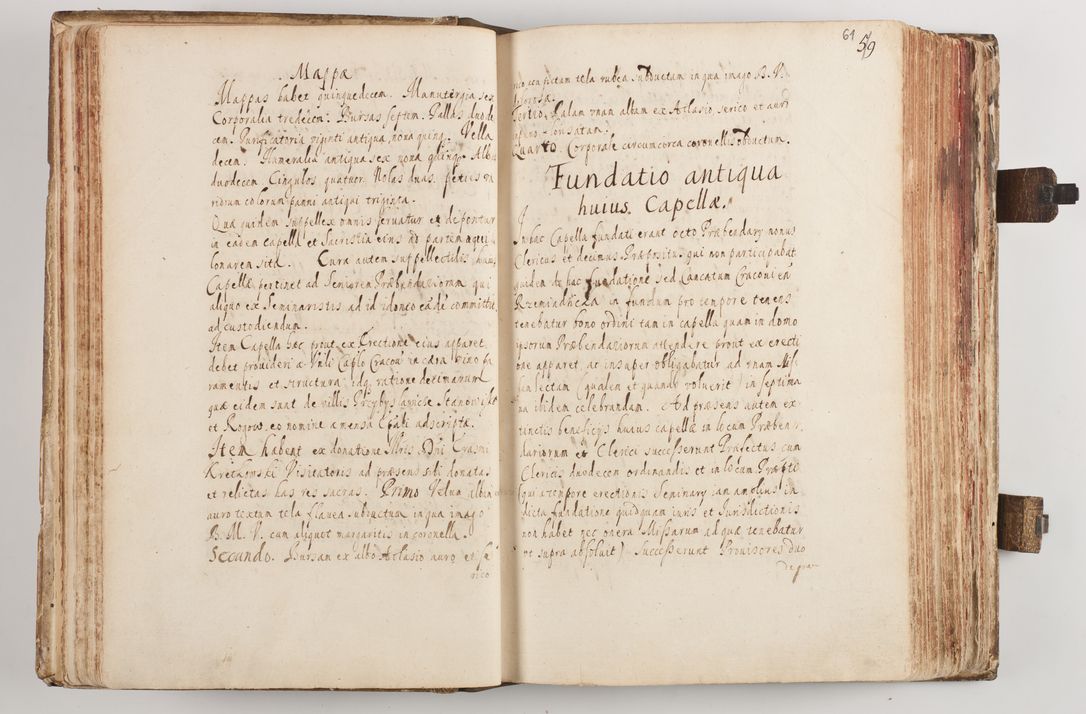 Mappæ
Mappas habet quinquedecem. Manutergia sex
Corporalia tredecem. Bursas septem. Pallas duode
cem. Purificatoria viginti antiqua, nova quinq. Vella
decem. Humeralia antiqua sex nova quinq. Albas
duodecem Cingulos quatuor, Nolas duas.
riorum colorum panni antiqui triginta.
Quæ quidem suppellex omnis servatur et deponitur
in eadem capella et Sacristia eius ad partem aquilo
lonarem sita. Cura autem suppellectilis huius
Capellæ pertinet ad Seniorem Præbendariorum qui
aliquo ex Seminaristis ad id idoneo eãdẽ committit
ad custodiendum.
Item Capella hæc prout ex Erectione eius apparet,
debet provideri a Vnli Caplo Cracoũ in cæra vino pa
ramentis et structura, idq; ratione decimarum
quæ eidem sunt de villis Przybyslawice Stanowisko
et Rogow eo nomine a mensa Epali adscripta.
Item habent ex donatione Illris Dni Erasmi
Kretkowski Visitatoris ad præsens sibi donatas
et relictas has res sacras. Primo Velum album
auro textum tela flavea subductum in qua imago
B. M. V. cum aliquot margaritis in coronella.
Secundo. Bursam ex albo Atlasio auro et se
rico
61 59
rico confectam tela rubea subductam in qua imago B. V.
dolorosæ.
Tertio. Palam vnam albam ex Atlasio serico et auri
Quarto. Corporale circumcirca coronellis obductum.
Fundatio antiqua
huius Capellæ.
In hac Capella fundati erant octo Præbendarij nonus
Clericus et decimus Præpositus qui non participabat
quidem de hac fundatione sed Lancatum Cracoui en
Kzemiadhcka in fundum pro tempore tenens
tenebatur bono ordini tam in capella quam in domo
ipsorum Præbendariorum attendere prout ex erecti
one apparet, ac insuper obligabatur ad vnam Mis
sam lectam (qualem et quando voluerit) in septima
na ibidem celebrandam. Ad præsens autem ex
tinctis beneficijs huius capellæ in locum Præben
dariorum et Clerici successerunt Præfectus cum
Clericis duodecem ordinandis et in locum Præpti
(qui a tempore erectionis Seminarij iam amplius in
dicta fundatione quidquam iuris et Iurisdictionis
non habet nec onera Missarum ad quæ tenebatur
vt supra absoluit) Successerunt Provisores duo
de gre